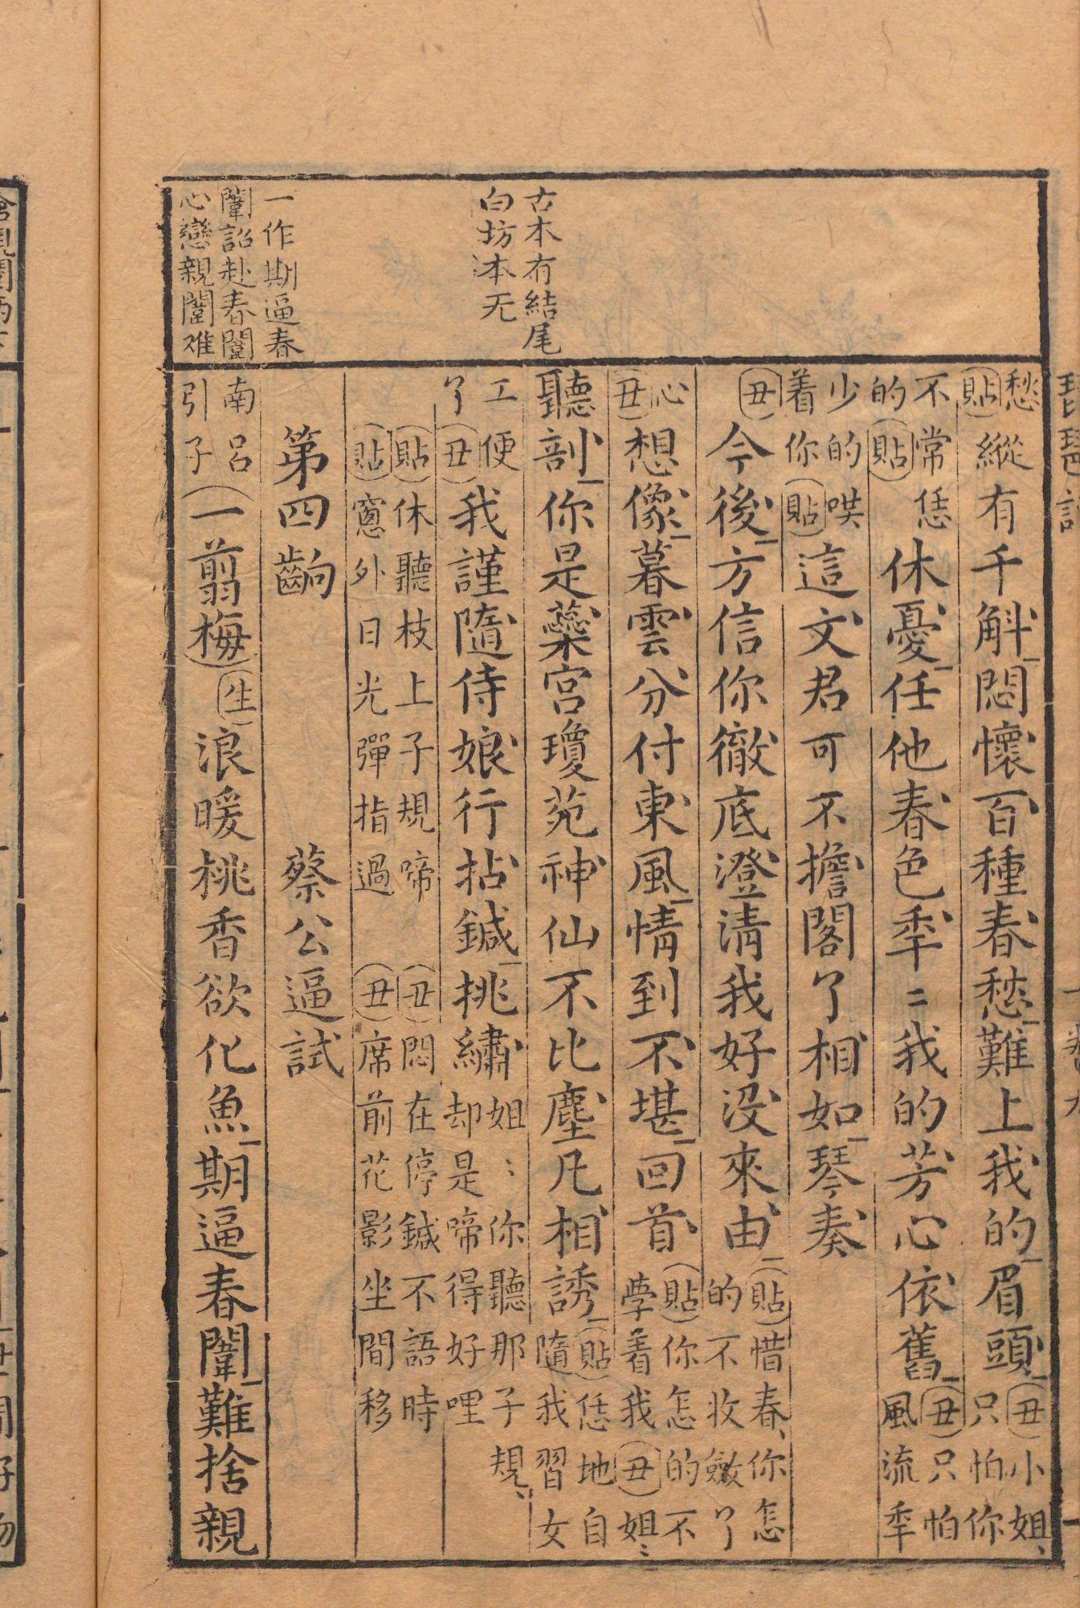 琵琶記
愁
(貼)縱有千斛悶懷百種春愁難上我的眉頭(丑)小姐、
只怕你
不常恁
的(貼)休憂任他春色秊〻我的芳心依舊(丑)只怕
風流秊
少的哄
着你(貼)這文君可不擔閣了相如琴奏
(丑)今後方信你徹底澄清我好没來由(貼)惜春、你怎
的不收斂了
心
(丑)想像暮雲分付東風情到不堪回首(貼)你怎的不
學着我(丑)姐〻
聽剖你是蘂宮瓊苑神仙不比塵凡相誘(貼)恁地自
隨我習女
工便
了(丑)我謹隨侍娘行拈鍼挑繡姐〻你聽那子規、
却是啼得好哩
(貼)休聽枝上子規啼 (丑)悶在停鍼不語時
(貼)窻外日光彈指過 (丑)席前花影坐間移
第四齣 蔡公逼試
南呂
引子(一翦梅)(生)浪暖桃香欲化魚期逼春闈難捨親
古本有結尾
白坊本无
一作期逼春
闈詔赴春闈
心戀親闈难